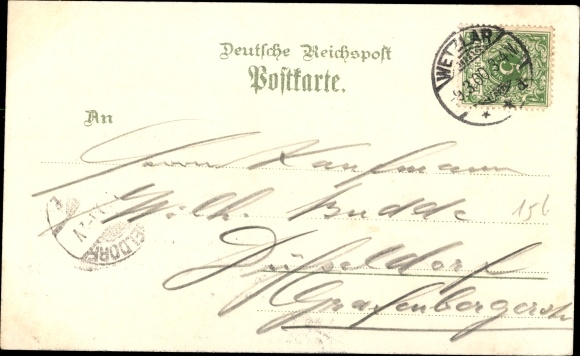 Deutsche Reichspost
Postkarte.
WETZLAR
5
An
Herrn Kaufmann
Wilh. Budde
15b
Düsseldorf
Grafenbergerstr